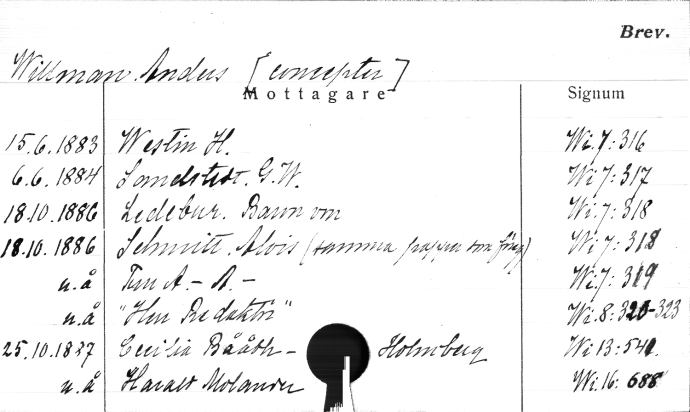 Brev.
Willman Anders [concepter]
Mottagare Signum
15.6.1883 Westin H. Wi.7:316
6.6.1884 Sandstedt. G.W. Wi 7:317
18.10.1886 Ledebur. Baron von Wi.7:318
18.10.1886 Schmitt. Alois (samma papper som föreg) Wi 7:318
u.å A.- A.- Wi.7:319
u.å "Herr Redaktör" Wi.8:320-323
25.10.1887 Cecilia Bååth-Holmberg Wi 13:541
u.å Harald Molander Wi.16:688